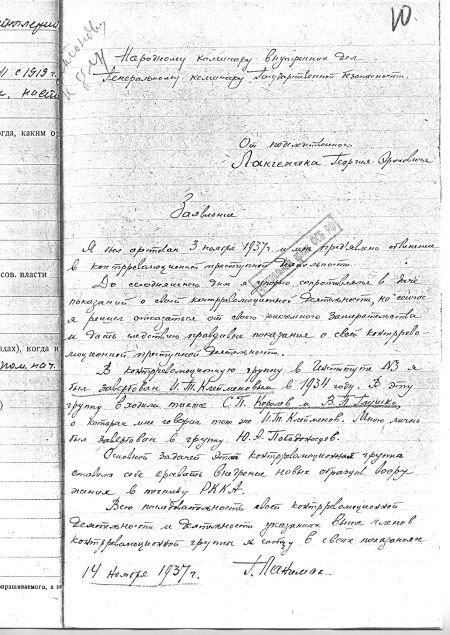 10
Народному комиссару внутренних дел
Генеральному комиссару Государственной безопасности
От подследственного
Лангемака Георгия Эриховича
Заявление
Я был арестован 3 ноября 1937 г и мне предъявлено обвинение
в контрреволюционной преступной деятельности.
До сегодняшнего дня я упорно сопротивлялся в даче
показаний о своей контрреволюционной деятельности, но сейчас
я решил отказаться от своего ненужного запирательства
и дать следствию правдивые показания о своей контррево-
люционной преступной деятельности.
В контрреволюционную группу в Институте №3 я
был завербован И.Т. Клейменовым в 1934 году. В эту
группу входили также С.П. Королев и В.П. Глушко,
о которых мне говорил тот же И.Т. Клейменов. Мною лично
был завербован в группу Ю.А. Победоносцев.
Основной задачей этая контрреволюционная группа
ставила себе срывать внедрение новых образцов воору
жения в технику РККА.
Всю последовательность своей контрреволюционной
деятельности и деятельности указанных выше членов
контрреволюционной группы я сообщу в своих показаниях
14 ноября 1937 г. Г. Лангемак
с 1919 г.
когда, каким о
сов. власти
дах), когда и
прашиваемого, а п